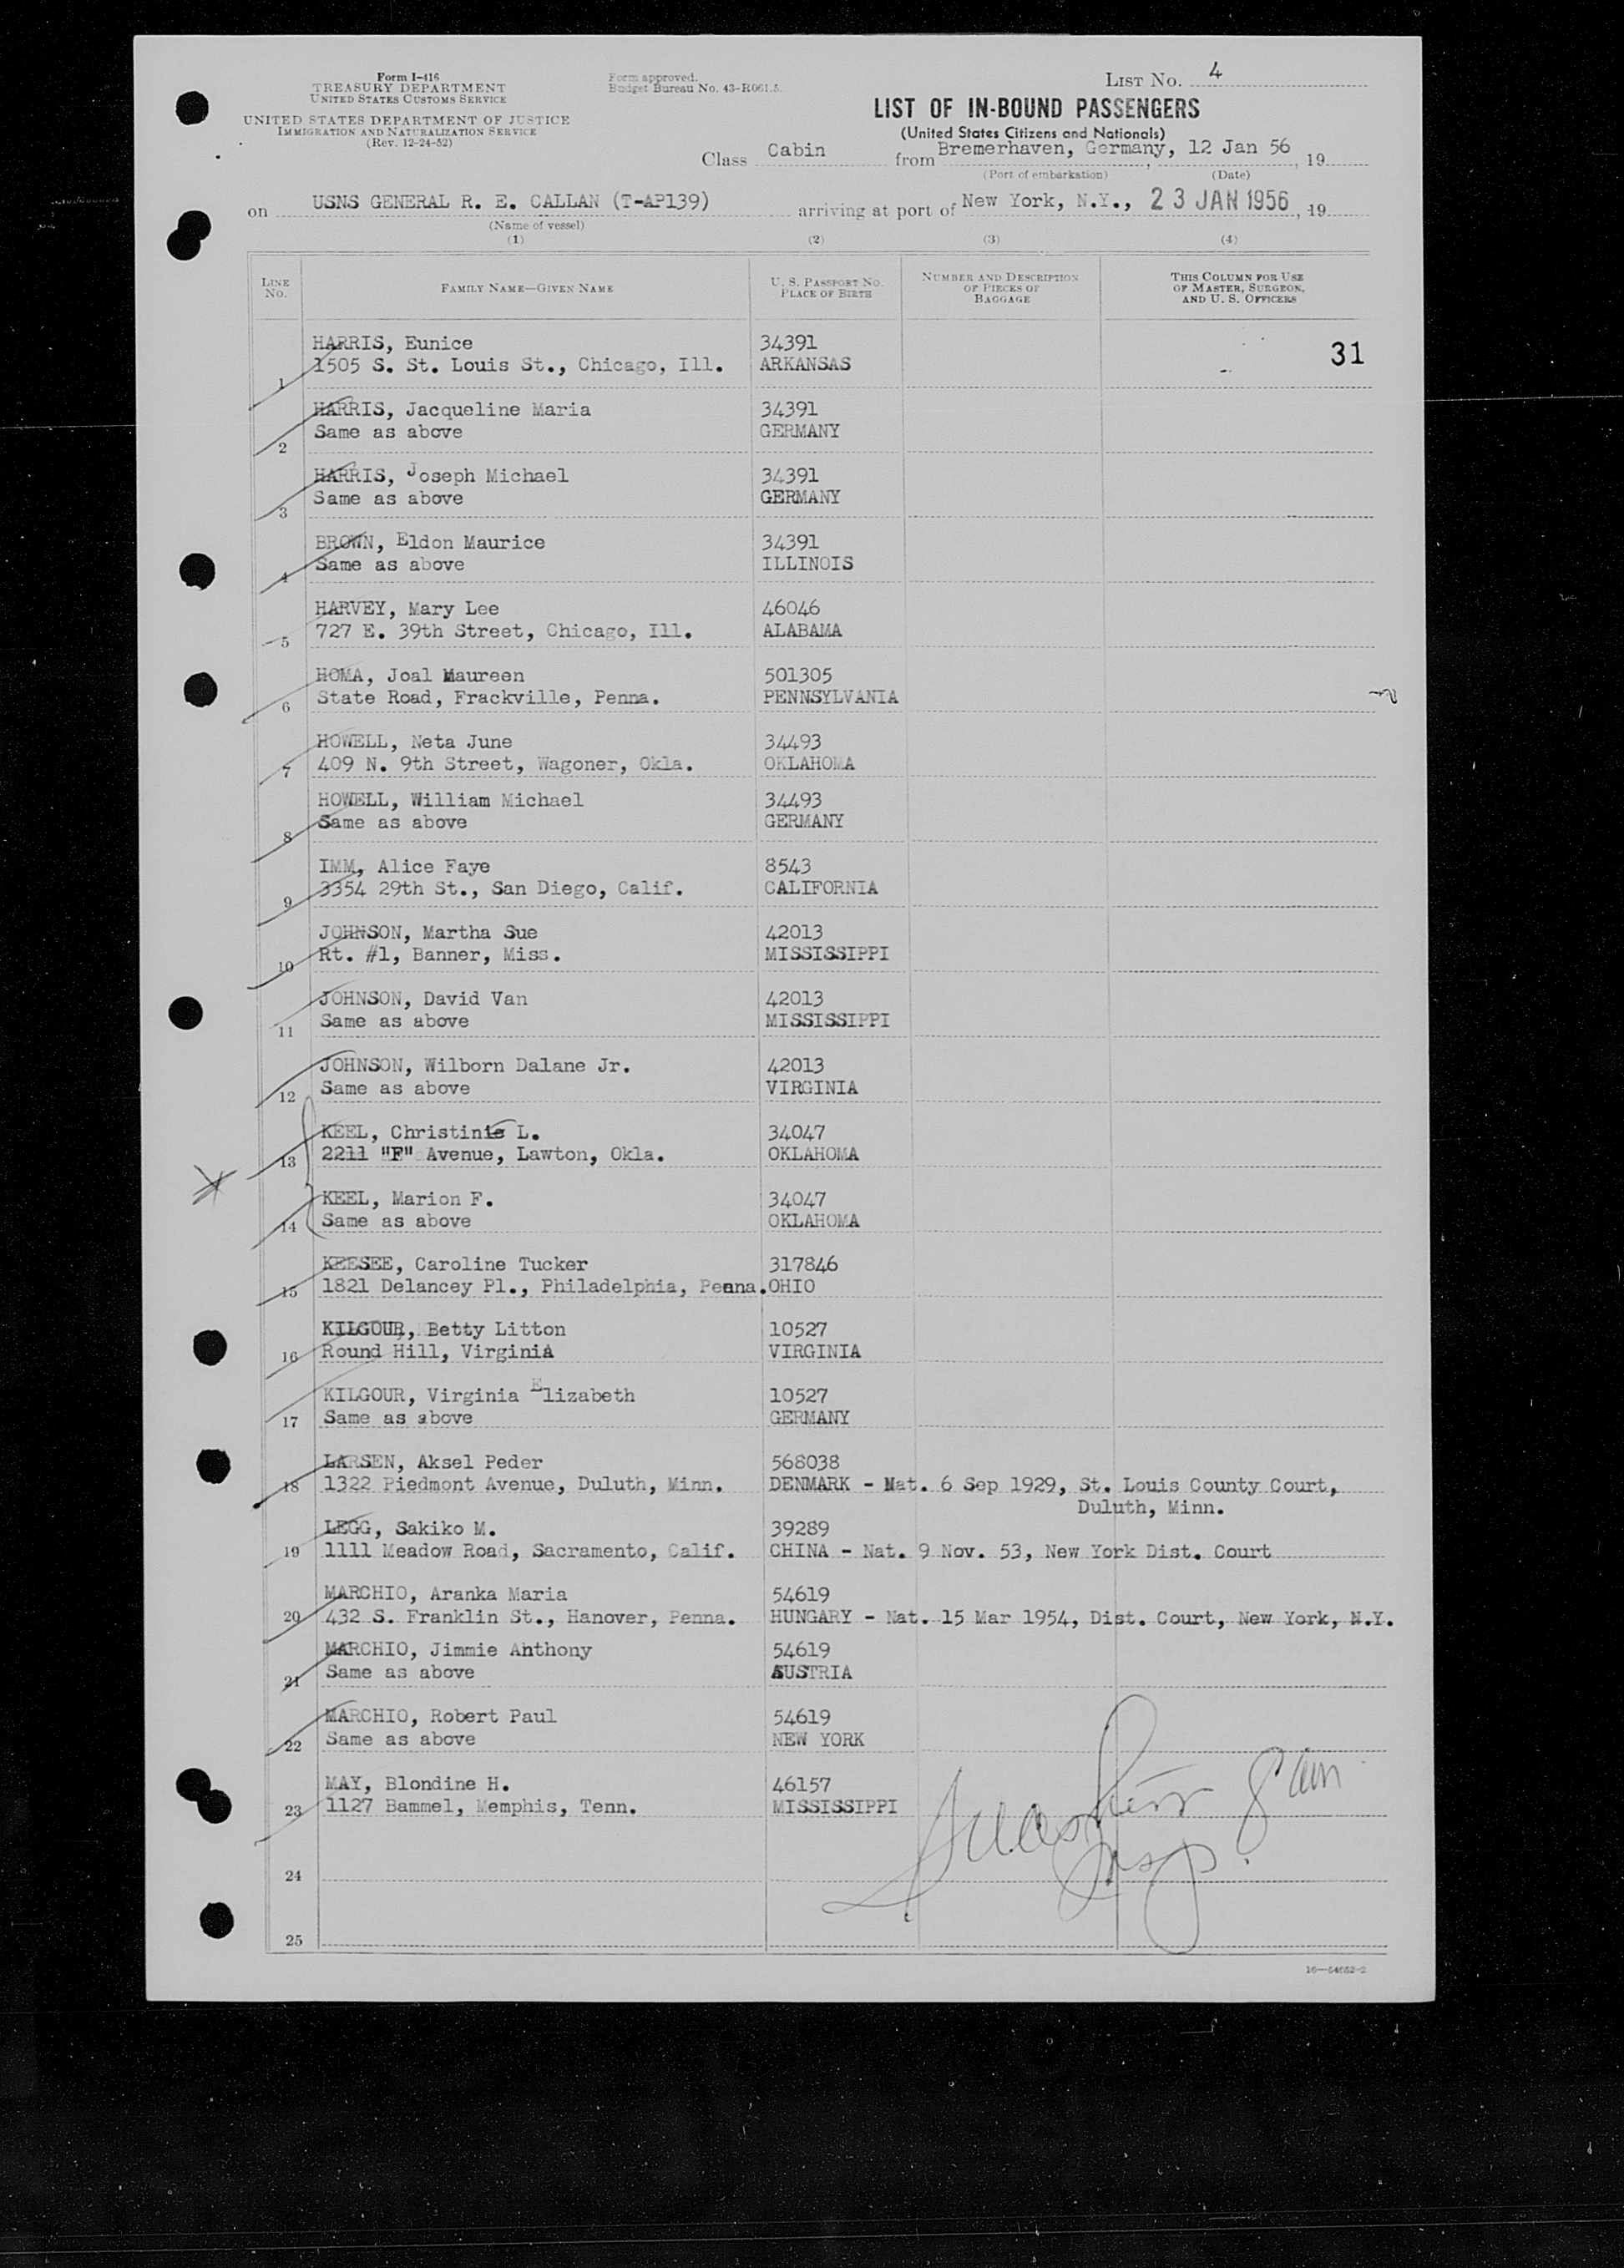 Form I-416
TREASURY DEPARTMENT
UNITED STATES CUSTOMS SERVICE
UNITED STATES DEPARTMENT OF JUSTICE
IMMIGRATION AND NATURALIZATION SERVICE
(Rev. 12-24-52)
Form approved.
Budget Bureau No. 43-R061.5.
LIST NO. 4
LIST OF IN-BOUND PASSENGERS
(United States Citizens and Nationals)
Class Cabin from Bremerhaven, Germany, 12 Jan 56, 19
(Port of embarkation) (Date)
on USNS GENERAL R. E. CALLAN (T-AP139) arriving at port of New York, N.Y., 23 JAN 1956, 19
(Name of vessel)
(1) (2) (3) (4)
LINE NO. FAMILY NAME—GIVEN NAME U. S. PASSPORT NO. PLACE OF BIRTH NUMBER AND DESCRIPTION OF PIECES OF BAGGAGE THIS COLUMN FOR USE OF MASTER, SURGEON, AND U. S. OFFICERS
HARRIS, Eunice 34391 31
1 1505 S. St. Louis St., Chicago, Ill. ARKANSAS
HARRIS, Jacqueline Maria 34391
2 Same as above GERMANY
HARRIS, Joseph Michael 34391
3 Same as above GERMANY
BROWN, Eldon Maurice 34391
4 Same as above ILLINOIS
HARVEY, Mary Lee 46046
5 727 E. 39th Street, Chicago, Ill. ALABAMA
HOMA, Joal Maureen 501305
6 State Road, Frackville, Penna. PENNSYLVANIA
HOWELL, Neta June 34493
7 409 N. 9th Street, Wagoner, Okla. OKLAHOMA
HOWELL, William Michael 34493
8 Same as above GERMANY
IMM, Alice Faye 8543
9 3354 29th St., San Diego, Calif. CALIFORNIA
JOHNSON, Martha Sue 42013
10 Rt. #1, Banner, Miss. MISSISSIPPI
JOHNSON, David Van 42013
11 Same as above MISSISSIPPI
JOHNSON, Wilborn Dalane Jr. 42013
12 Same as above VIRGINIA
KEEL, Christinie L. 34047
13 2211 "F" Avenue, Lawton, Okla. OKLAHOMA
KEEL, Marion F. 34047
14 Same as above OKLAHOMA
KEESEE, Caroline Tucker 317846
15 1821 Delancey Pl., Philadelphia, Penna. OHIO
KILGOUR, Betty Litton 10527
16 Round Hill, Virginia VIRGINIA
KILGOUR, Virginia Elizabeth 10527
17 Same as above GERMANY
LARSEN, Aksel Peder 568038
18 1322 Piedmont Avenue, Duluth, Minn. DENMARK - Nat. 6 Sep 1929, St. Louis County Court,
Duluth, Minn.
LEGG, Sakiko M. 39289
19 1111 Meadow Road, Sacramento, Calif. CHINA - Nat. 9 Nov. 53, New York Dist. Court
MARCHIO, Aranka Maria 54619
20 432 S. Franklin St., Hanover, Penna. HUNGARY - Nat. 15 Mar 1954, Dist. Court, New York, N.Y.
MARCHIO, Jimmie Anthony 54619
21 Same as above AUSTRIA
MARCHIO, Robert Paul 54619
22 Same as above NEW YORK
MAY, Blondine H. 46157
23 1127 Bammel, Memphis, Tenn. MISSISSIPPI
24
25